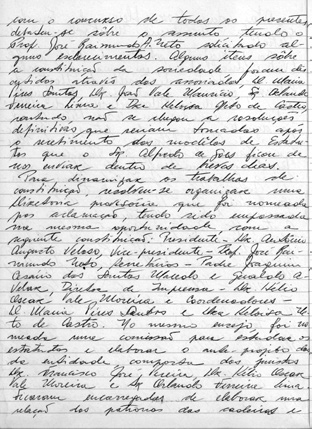 com o concurso de todos os presentes
sobre o assunto tendo o
Prof. José Raimundo Neto solicitado al
guns esclarecimentos. Alguns itens sobre
a constituição da sociedade foram dis
cutidos através dos associados D. Maria
Pires Santos, Dr. João Vale Mauricio, Dr. Orlando
Ferreira Lima e Dra Heloisa Neto de Castro
não se chegou a resoluções
definitivas que seriam tomadas após
o recebimento dos modelos de Estatu-
tos que o Sr. Alfredo de Goes ficou de
nos enviar dentro de breves dias.
Para dinamizar os trabalhos de
constituição, resolveu-se organizar uma
Diretoria provisória que foi nomeada
por aclamação, tendo sido empossada
na mesma oportunidade com a
seguinte constituição: Presidente - Dr. Antonio
Augusto Veloso, Vice-presidente - Prof. José Rai-
mundo Neto, Secretários - Padre Joaquim
Cesario dos Santos Macedo - Geraldo A
Velar, Diretor de Imprensa - Dr. Hélio
Oscar Vale Moreira e Coordenadores -
D. Maria Pires Santos e Dra Heloisa Ne
to de Castro. No mesmo ensejo, foi no
meada uma comissão para estudar os
estatutos e elaborar o ante projeto da
da entidade composta dos juristas
Dr. Francisco José Pereira, Dr. Hélio Oscar
Vale Moreira e Dr. Orlando Ferreira Lima
ficaram encarregados de elaborar uma
relação dos patronos das cadeiras e